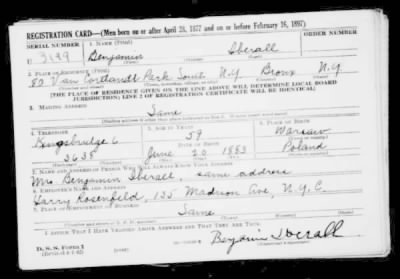 REGISTRATION CARD—(Men born on or after April 28, 1877 and on or before February 16, 1897)
SERIAL NUMBER 1. NAME (Print)
U 3199 Benjamin Iberall
2. PLACE OF RESIDENCE (Print)
80 Van Cortlandt Park South N.Y. Bronx N.Y
[THE PLACE OF RESIDENCE GIVEN ON THE LINE ABOVE WILL DETERMINE LOCAL BOARD
JURISDICTION; LINE 2 OF REGISTRATION CERTIFICATE WILL BE IDENTICAL]
3. MAILING ADDRESS
Same
4. TELEPHONE 5. AGE IN YEARS 6. PLACE OF BIRTH
Kingsbridge 6 59 Warsaw
DATE OF BIRTH
3638 June 20 1883 Poland
7. NAME AND ADDRESS OF PERSON WHO WILL ALWAYS KNOW YOUR ADDRESS
Mrs. Benjamin Iberall, same address
8. EMPLOYER'S NAME AND ADDRESS
Harry Rosenfeld, 135 Madison Ave, N.Y.C.
9. PLACE OF EMPLOYMENT OR BUSINESS
Same
I AFFIRM THAT I HAVE VERIFIED ABOVE ANSWERS AND THAT THEY ARE TRUE.
D. S. S. Form 1
Benjamin Iberall